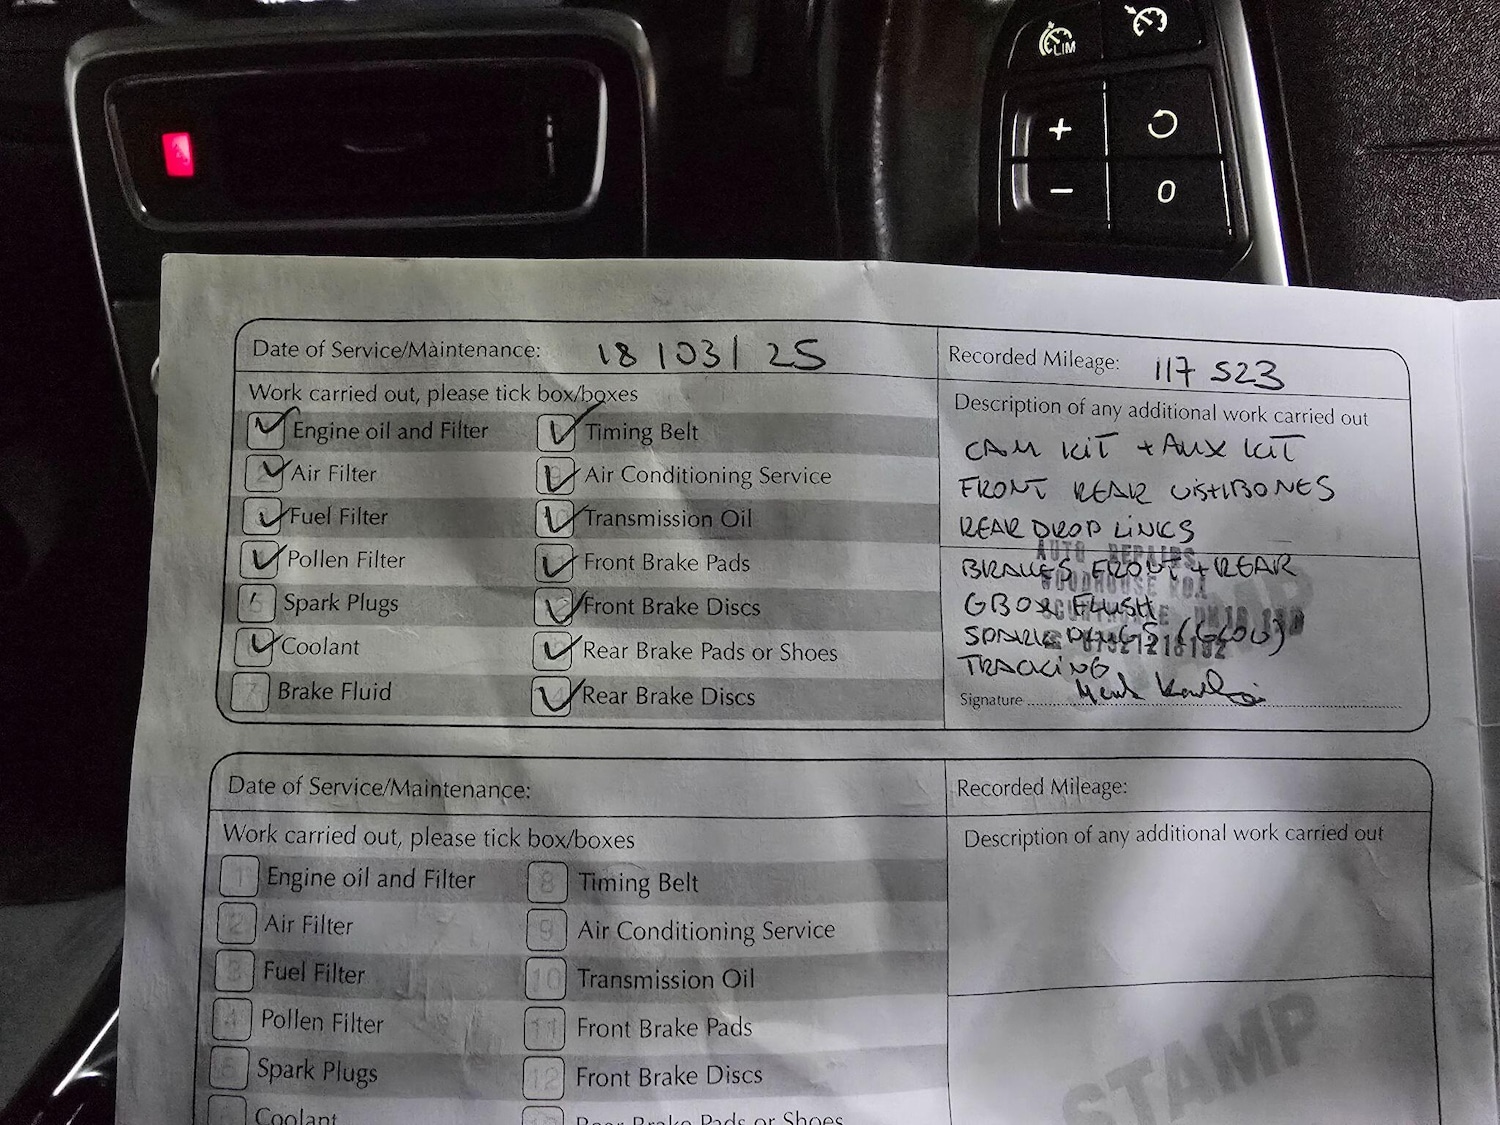 LIM
+
-
0
Date of Service/Maintenance: 18/03/25
Recorded Mileage: 117 523
Work carried out, please tick box/boxes
Description of any additional work carried out
Engine oil and Filter
Timing Belt
CAM KIT + AUX KIT
Air Filter
Air Conditioning Service
FRONT REAR WISHBONES
Fuel Filter
Transmission Oil
REAR DROP LINKS
AUTO REPAIRS
Pollen Filter
Front Brake Pads
BRAKES FRONT + REAR
WOODHOUSE
5 Spark Plugs
Front Brake Discs
GBOX FLUSH
Coolant
Rear Brake Pads or Shoes
SPARK PLUGS (GLOW)
7 Brake Fluid
Rear Brake Discs
TRACKING
Signature
Date of Service/Maintenance:
Recorded Mileage:
Work carried out, please tick box/boxes
Description of any additional work carried out
1 Engine oil and Filter
8 Timing Belt
2 Air Filter
9 Air Conditioning Service
3 Fuel Filter
10 Transmission Oil
4 Pollen Filter
11 Front Brake Pads
5 Spark Plugs
12 Front Brake Discs
Coolant
Rear Brake Pads or Shoes
STAMP